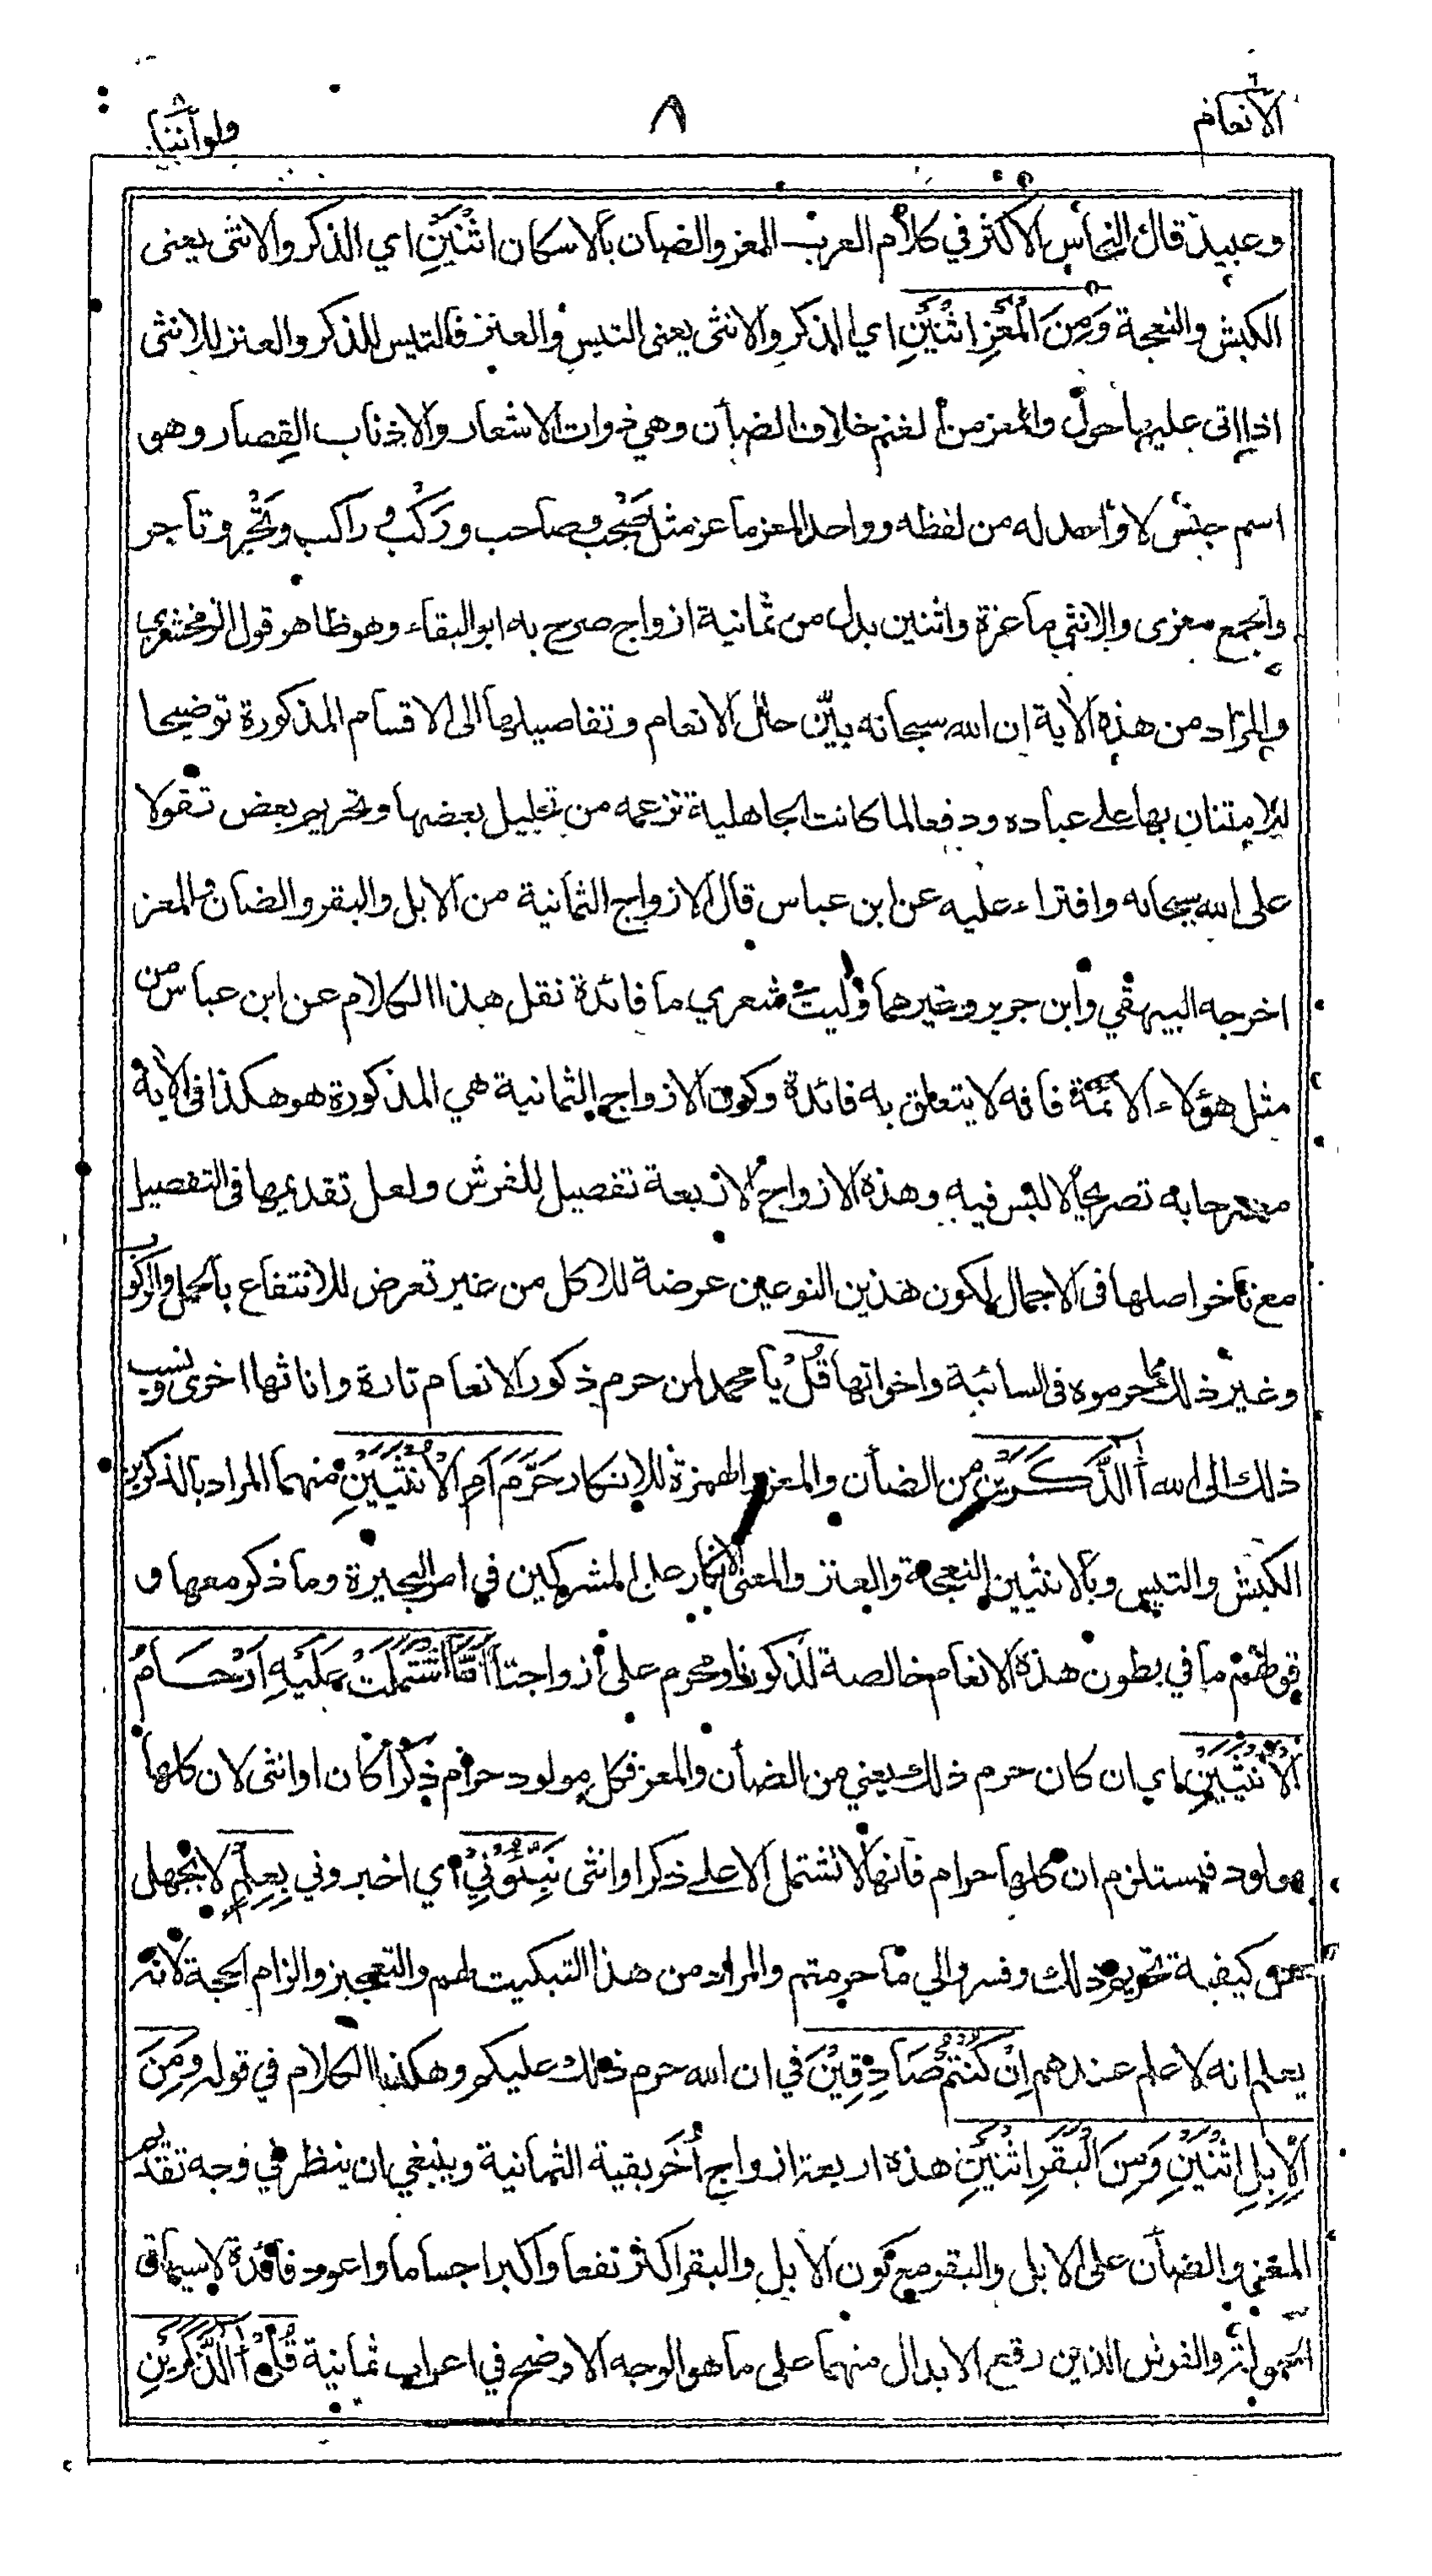 الانعام ٦
٨
ولو اننا ٨
وعبيد قال النحاس الاكثر في كلام العرب المعز والضان بالاسكان اثْنَيْنِ اي الذكر والانثى يعنى
الكبش والنعجة وَمِنَ الْمَعْزِ اثْنَيْنِ اي الذكر والانثى يعنى التيس والعنز فالتيس للذكر والعنز للانثى
اذا اتى عليها حول والمعز من الغنم خلاف الضأن وهي ذوات الاشعار والاذناب القصار وهو
اسم جنس لا واحد له من لفظه وواحد المعز ماعز مثل صَحْب وصاحب ورَكْب وراكب وتَجْر وتاجر
والجمع معزى والانثى ماعزة واثنين بدل من ثمانية ازواج صرح به ابو البقاء وهو ظاهر قول الزمخشري
والمراد من هذه الاية ان الله سبحانه بيّن حال الانعام وتفاصيلها الى الاقسام المذكورة توضيحا
للامتنان بها على عباده ودفعا لما كانت الجاهلية تزعمه من تحليل بعضها وتحريم بعض تقولا
على الله سبحانه وافتراء عليه عن ابن عباس قال الازواج الثمانية من الابل والبقر والضان والمعز
اخرجه البيهقي وابن جرير وغيرهما وليت شعري ما فائدة نقل هذا الكلام عن ابن عباس من
مثل هؤلاء الائمة فانه لا يتعلق به فائدة وكون الازواج الثمانية هي المذكورة هو هكذا فى الاية
مصرحا به تصريحا لا لبس فيه وهذه الازواج الاربعة تفصيل للفرش ولعل تقديمها فى التفصيل
مع تأخر اصلها فى الاجمال لكون هذين النوعين عرضة للاكل من غير تعرض للانتفاع بالحمل والركوب
وغير ذلك مما حرموه فى السائبة واخواتها قُلْ يا محمد لمن حرم ذكور الانعام تارة واناثها اخرى ونسب
ذلك الى الله آالذَّكَرَيْنِ من الضأن والمعز والهمزة للانكار حَرَّمَ اَمِ الْاُنْثَيَيْنِ منهما المراد بالذكرين
الكبش والتيس وبالانثيين النعجة والعنز والمعنى الانكار على المشركين في امر البحيرة وما ذكر معها و
قولهم ما في بطون هذه الانعام خالصة لذكورنا ومحرم على ازواجنا اَمَّا اشْتَمَلَتْ عَلَيْهِ اَرْحَامُ
الْاُنْثَيَيْنِ اي ان كان حرم ذلك يعني من الضأن والمعز فكل مولود حرام ذكرا كان او انثى لان كلها
مولود فيستلزم ان كلها حرام فانها لا تشتمل الا على ذكر او انثى نَبِّئُونِي اي اخبروني بِعِلْمٍ لا بجهل
عن كيفية تحريم ذلك وفسروا لي ما حرمتم والمراد من هذا التبكيت لهم والتعجيز والزام الحجة لانه
يعلم انه لا علم عندهم اِنْ كُنْتُمْ صَادِقِيْنَ في ان الله حرم ذلك عليكم وهكذا الكلام في قوله وَمِنَ
الْاِبِلِ اثْنَيْنِ وَمِنَ الْبَقَرِ اثْنَيْنِ هذه اربعة ازواج أُخَر بقية الثمانية وينبغي ان ينظر في وجه تقديم
المعز والضأن على الابل والبقر مع كون الابل والبقر اكثر نفعا واكبر اجساما واعود فائدة لا سيما في
الحمولة والفرش الذين وقع الابدال منهما على ما هو الوجه الاوضح في اعراب ثمانية قُلْ آالذَّكَرَيْنِ